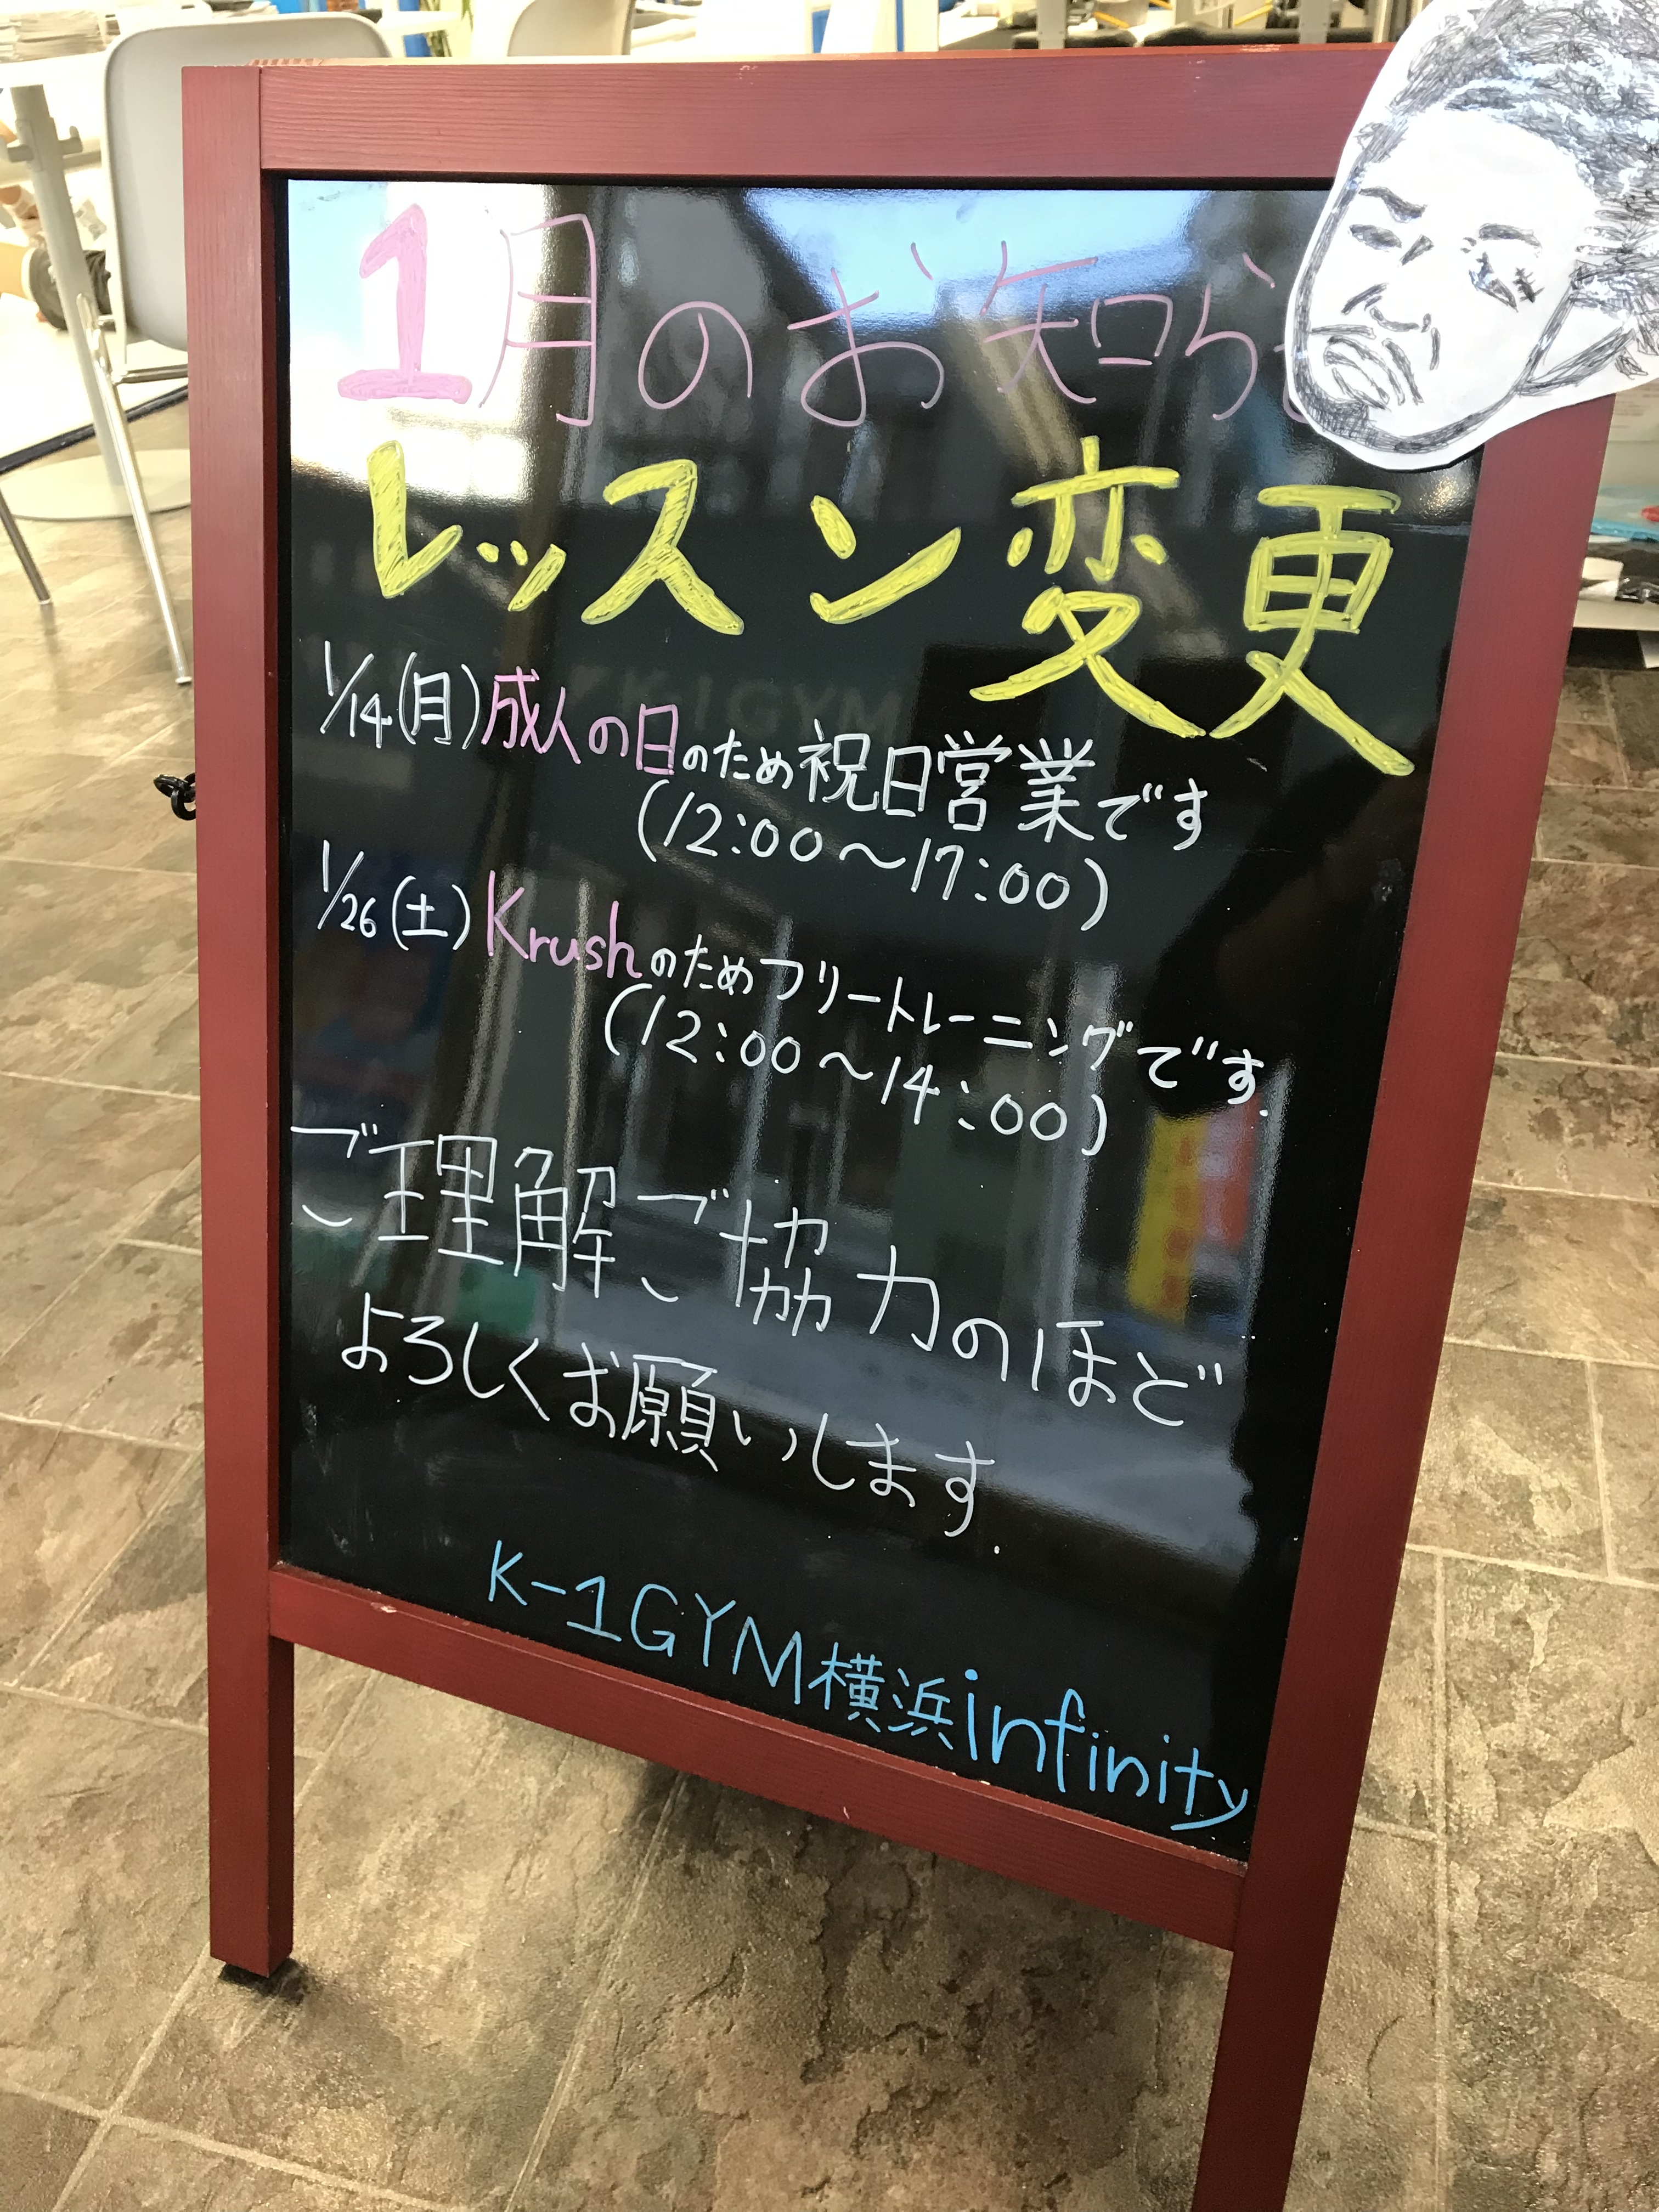 1月のお知ら
レッスン変更
1/14(月)成人の日のため祝日営業です
(12:00～17:00)
1/26(土)Krushのためフリートレーニングです.
(12:00～14:00)
ご理解ご協力のほど
よろしくお願いします.
K-1GYM横浜infinity